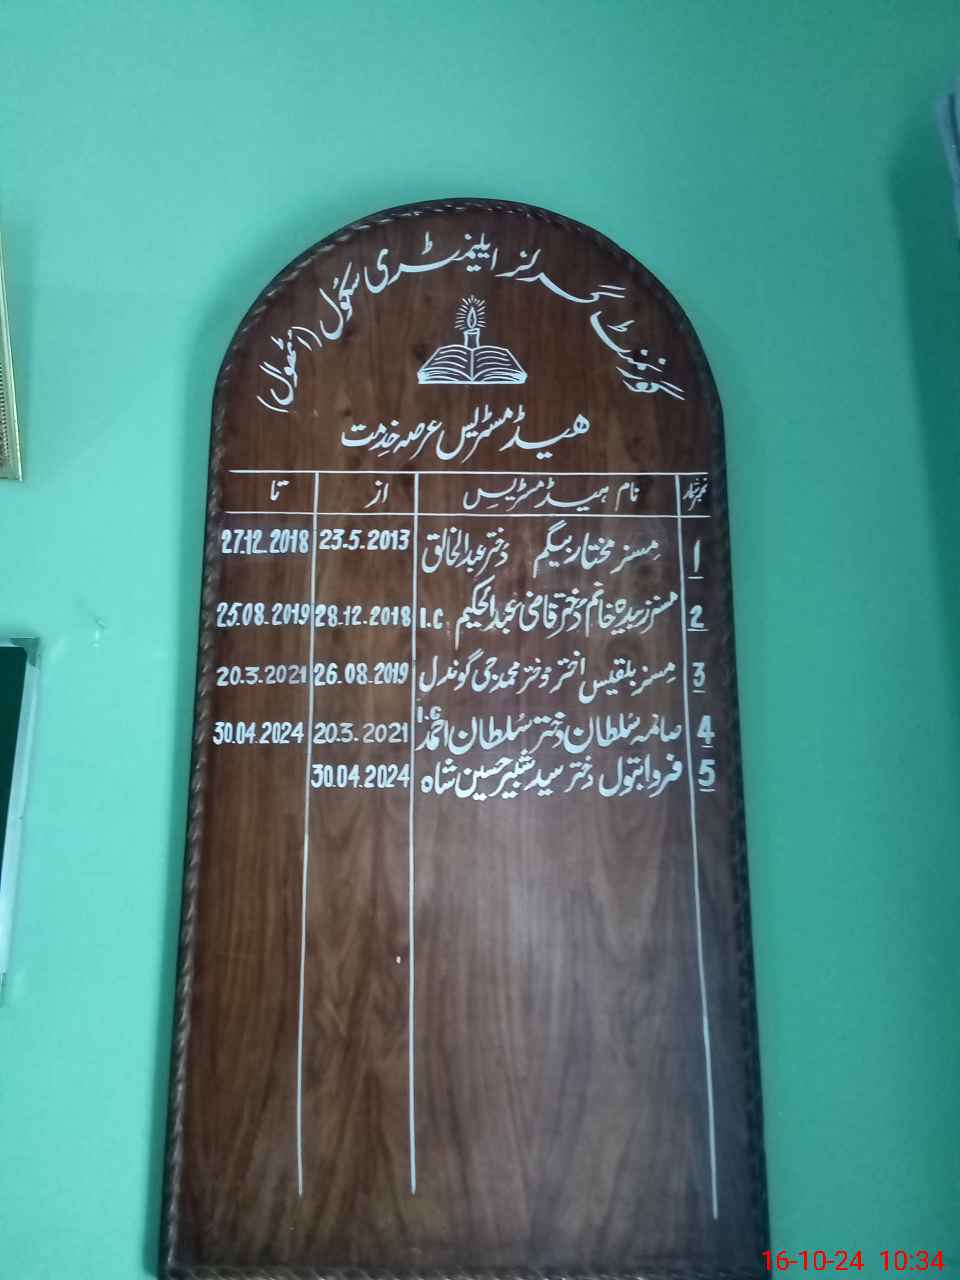 گورنمنٹ گرلز ایلیمنٹری سکول (اٹھوال)
ہیڈمسٹریس عرصہ خدمت
نمبر شمار نام ہیڈمسٹریس از تا
1 مسز مختار بیگم دختر عبدالخالق 23.5.2013 27.12.2018
2 مسز زبیدہ خانم دختر قاضی عبدالحکیم I.C 28.12.2018 25.08.2019
3 مسز بلقیس اختر دختر محمد جی گوندل 26.08.2019 20.3.2021
4 صائمہ سلطان دختر سلطان احمد I.C 20.3.2021 30.04.2024
5 فروا بتول دختر سید شبیر حسین شاہ 30.04.2024
16-10-24 10:34